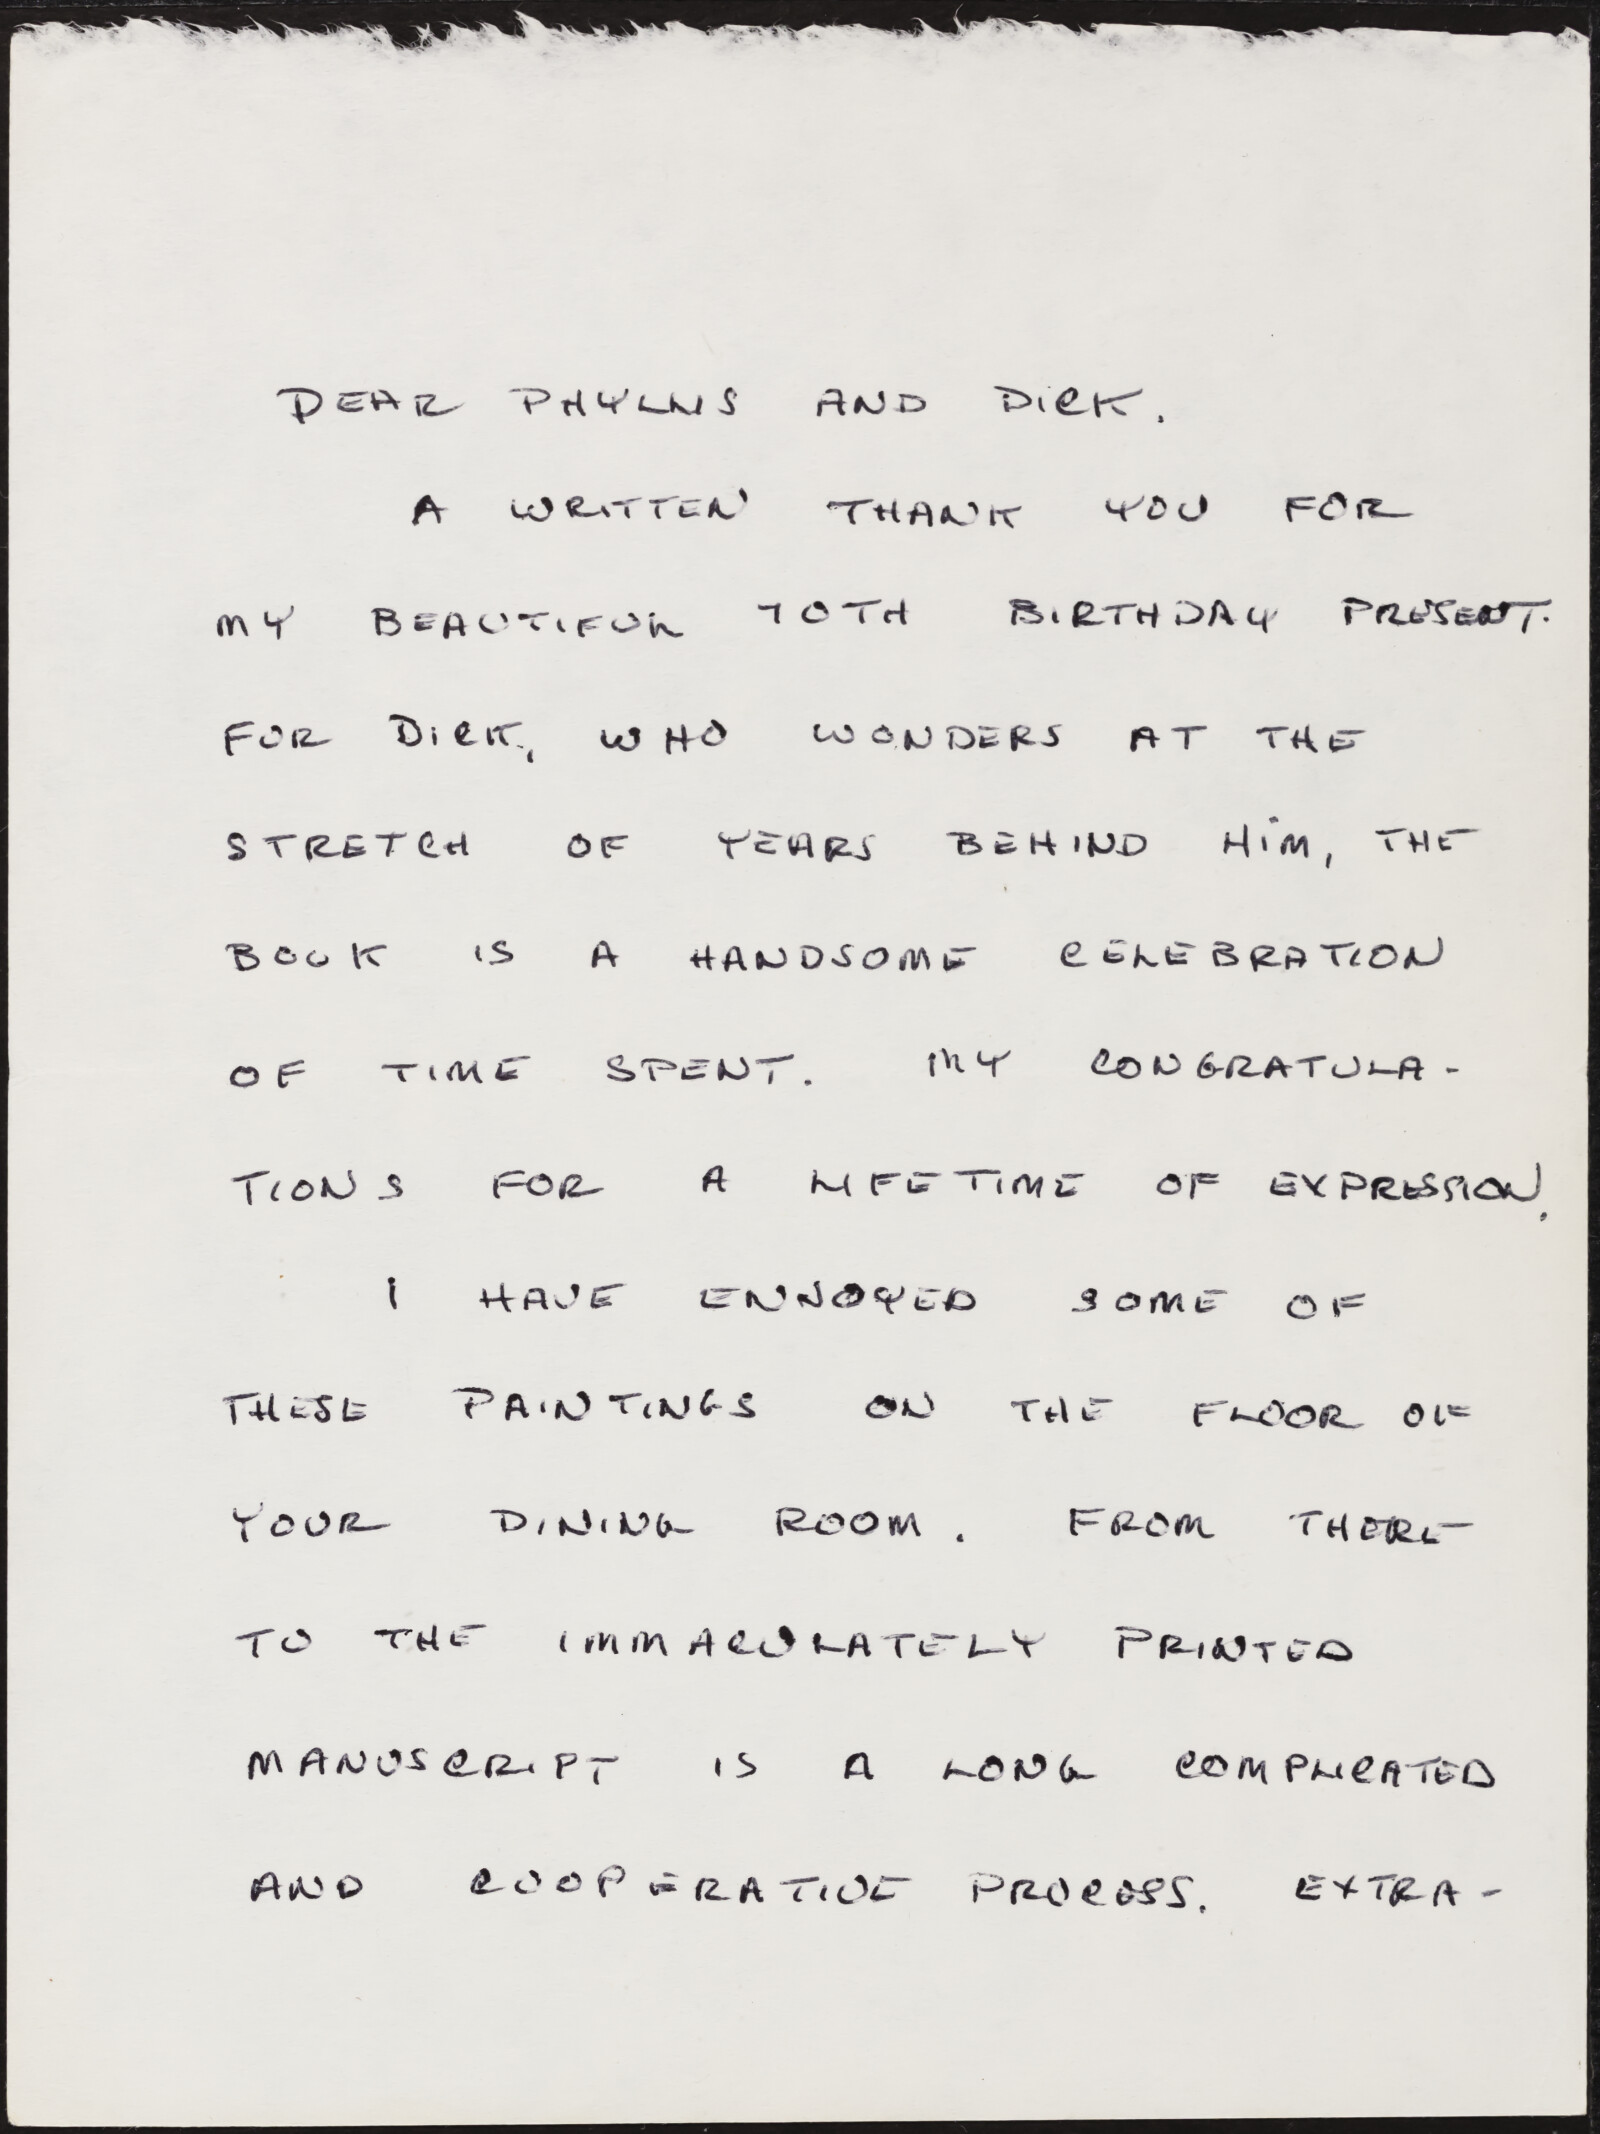 DEAR PHYLLIS AND DICK.
A WRITTEN THANK YOU FOR
MY BEAUTIFUL 70TH BIRTHDAY PRESENT.
FOR DICK, WHO WONDERS AT THE
STRETCH OF YEARS BEHIND HIM, THE
BOOK IS A HANDSOME CELEBRATION
OF TIME SPENT. MY CONGRATULA-
TIONS FOR A LIFETIME OF EXPRESSION.
I HAVE ENJOYED SOME OF
THESE PAINTINGS ON THE FLOOR OF
YOUR DINING ROOM. FROM THERE
TO THE IMMACULATELY PRINTED
MANUSCRIPT IS A LONG COMPLICATED
AND COOPERATIVE PROCESS. EXTRA-